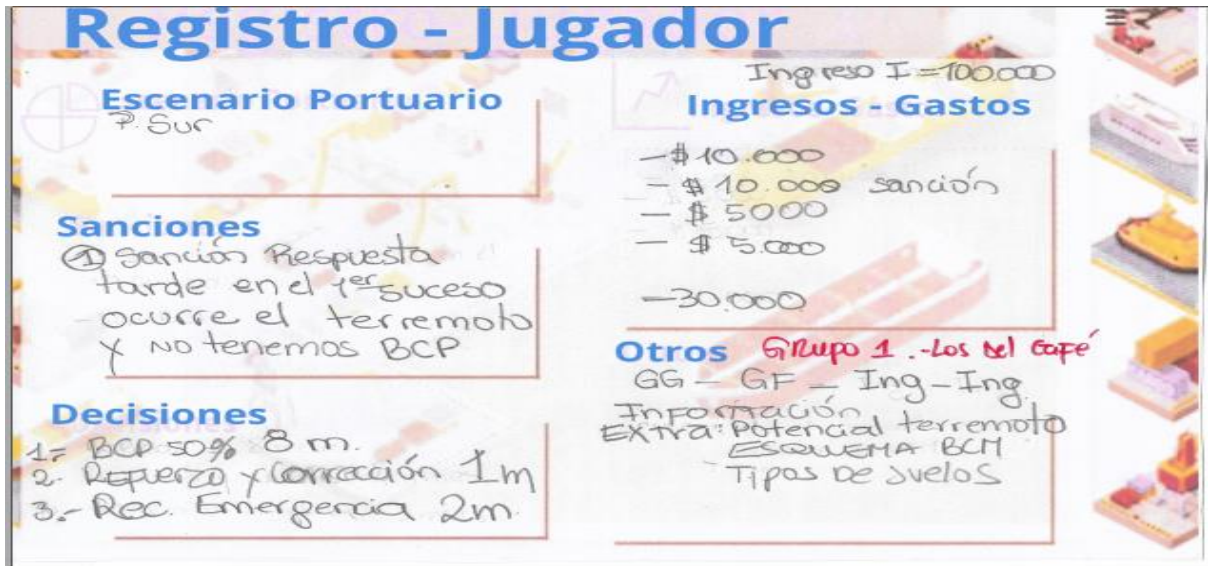 Registro - Jugador
Ingreso I = 100.000
Escenario Portuario
P. Sur
Sanciones
① Sanción Respuesta
tarde en el 1er suceso
ocurre el terremoto
Y no tenemos BCP
Decisiones
1.- BCP 50% 8 m.
2. Refuerzo y Corrección 1m
3.- Rec. Emergencia 2m.
Ingresos - Gastos
- $ 10.000
- $ 10.000 sanción
- $ 5000
- $ 5.000
- 30.000
Otros GRUPO 1.-Los del Café
GG - GF - Ing - Ing
Información
EXTRA: Potencial terremoto
ESQUEMA BCM
Tipos De suelos